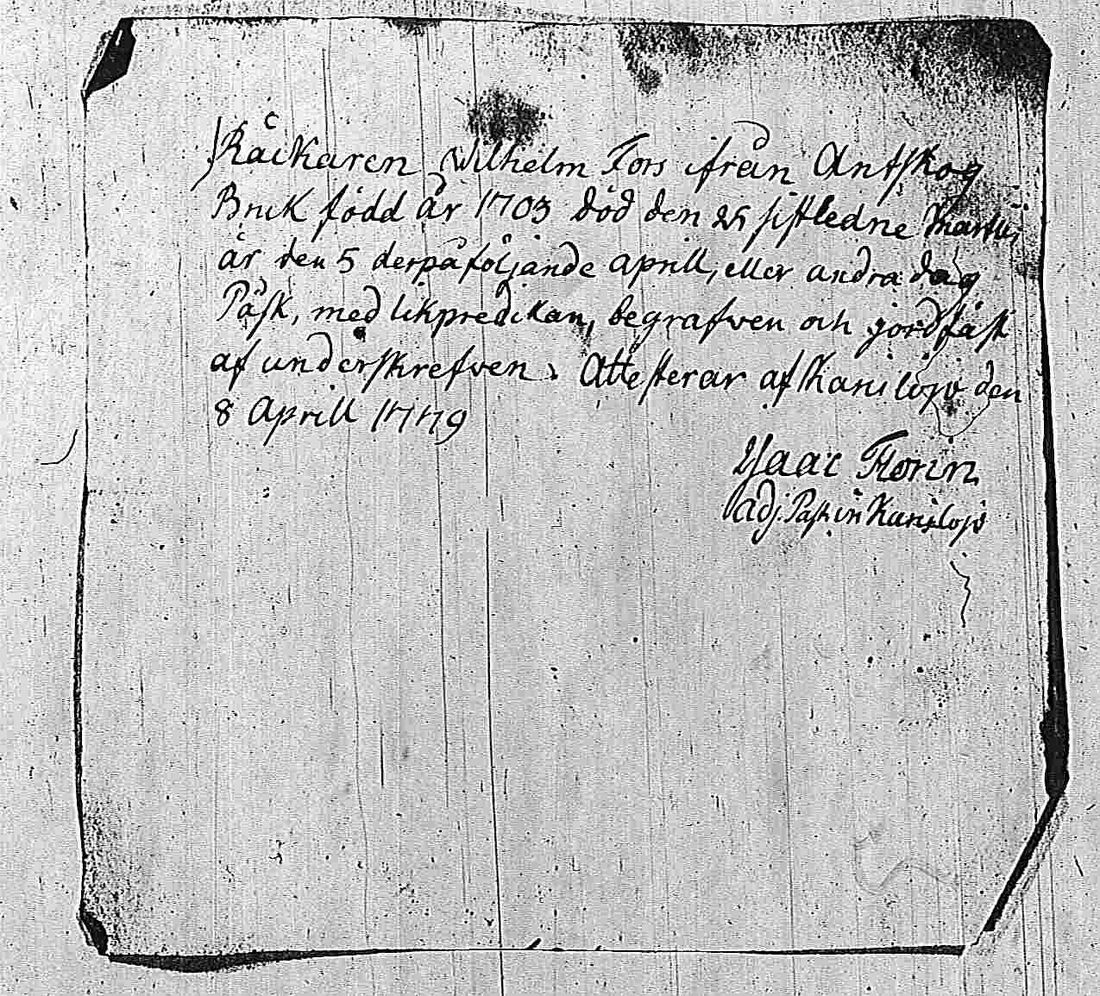 Råckaren Wilhelm Fors ifrån Antskog
Bruk född år 1703 död den 25 sistledne Martii
är den 5 derpåföljande aprill, eller andra dag
Påsk, med likpredikan, begrafwen och jordfäst
af underskrefwen. Attesterar af Karislojo den
8 Aprill 1779
Isaac Florin
adj. Past in Karislojo